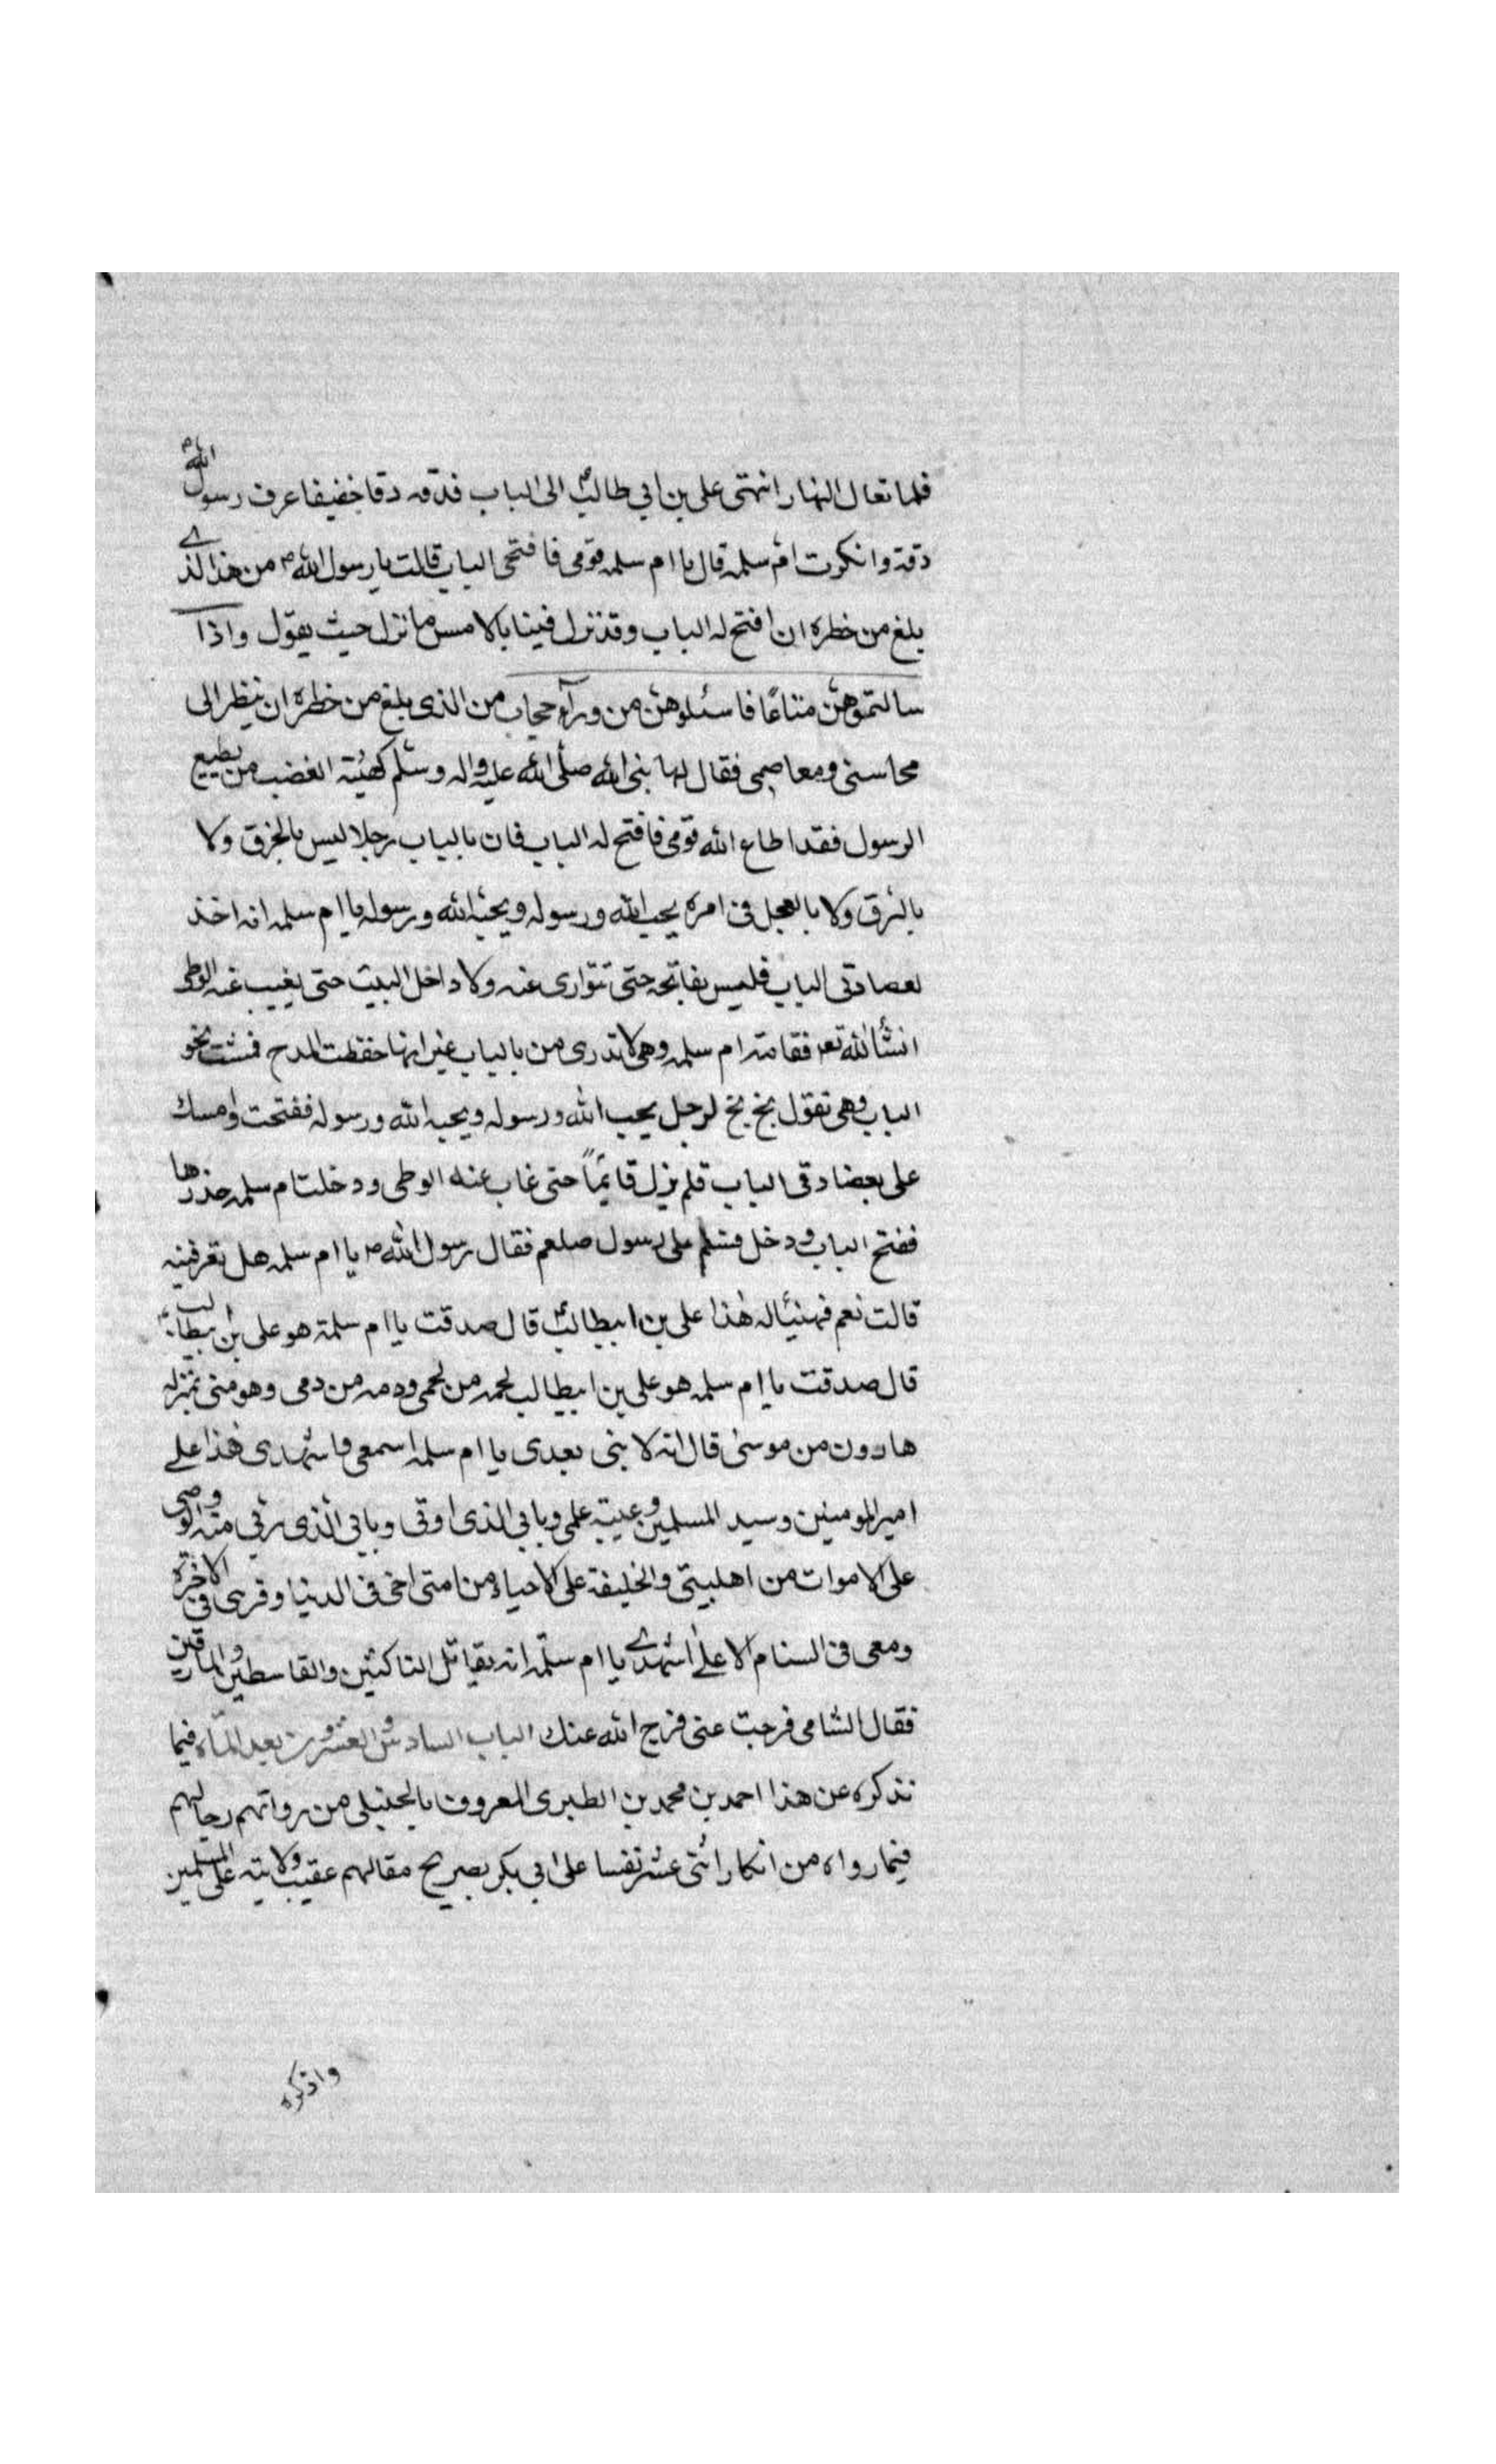 فلما تعال النهار انتهى على بن ابي طالب الى الباب فدقه دقا خفيفا عرف رسول الله ص
دقته وانكرت ام سلمه قال يا ام سلمه قومى فافتحى الباب قالت يا رسول الله ص من هذا لذے
بلغ من خطره ان افتح له الباب وقد نزل فينا بالامس ما نزل حيث يقول واذا
سالتموهن متاعًا فاسئلوهن من ورآء حجاب من الذى بلغ من خطره ان ينظر الى
محاسنى ومعاصمى فقال لها بنى الله صلى الله عليه واله وسلم كهيئة الغضب من يطيع
الرسول فقد اطاع الله قومى فافتح له الباب فان بالباب رجلا ليس بالخرق ولا
بالنزق ولا بالعجل فى امره يحب الله ورسوله ويحبه الله ورسوله يا ام سلمه انه اخذ
بعضادتى الباب فليس بفاتحه حتى تتوارى عنه ولا داخل البيت حتى يغيب عنه الوطى
انشأ الله تعر فقامت ام سلمه وهى لا تدرى من بالباب غير انها حفظت المدح فمشت نحو
الباب وهى تقول بخ بخ لرجل يحب الله ورسوله ويحبه الله ورسوله ففتحت وامسك
على بعضادتى الباب فلم يزل قائمًا حتى غاب عنه الوطى ودخلت ام سلمه خدرها
ففتح الباب ودخل فسلم على رسول صلعم فقال رسول الله ص يا ام سلمه هل تعرفينه
قالت نعم فهنيئاله هذا على بن ابيطالب قال صدقت يا ام سلمة هو على بن ابيطالب
قال صدقت يا ام سلمه هو على بن ابيطالب لحمه من لحمى ودمه من دمى وهو منى بمنزله
هارون من موسى قال انه لا بنى بعدى يا ام سلمه اسمعى واشهدى هذا على
امير المومنين وسيد المسلمين وعيبة علمى وبابي الذى اوتى وبابي الذى رقي منه والوصى
على الاموات من اهلبيتى والخليفة على الاحياء من امتى اخى فى الدنيا وقرينى فى الاخرة
ومعى فى السنام الاعلى اشهدے يا ام سلمه انه يقاتل الناكثين والقاسطين والمارقين
فقال الشامى فرجت عنى فرج الله عنك الباب السادس والعشرون بعد المأه فيما
نذكره عن هذا احمد بن محمد بن الطبرى المعروف بالخليلى من رواتهم رجالهم
فيما رواه من انكار اثنى عشر نفسا على ابي بكر بصريح مقالهم عقيب ولايته على المسلمين
واذكره